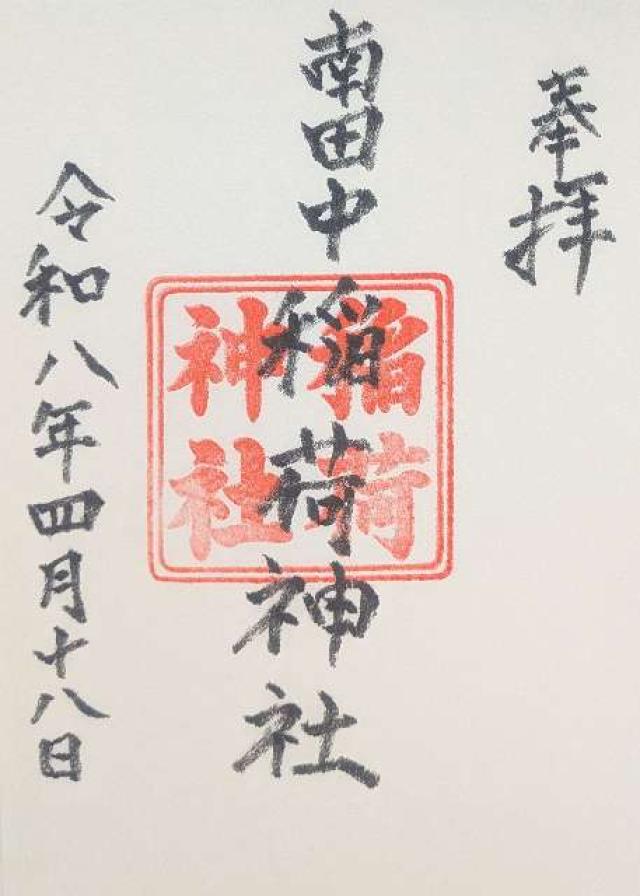 奉拝
南田中稲荷神社
稲荷
神社
令和八年四月十八日